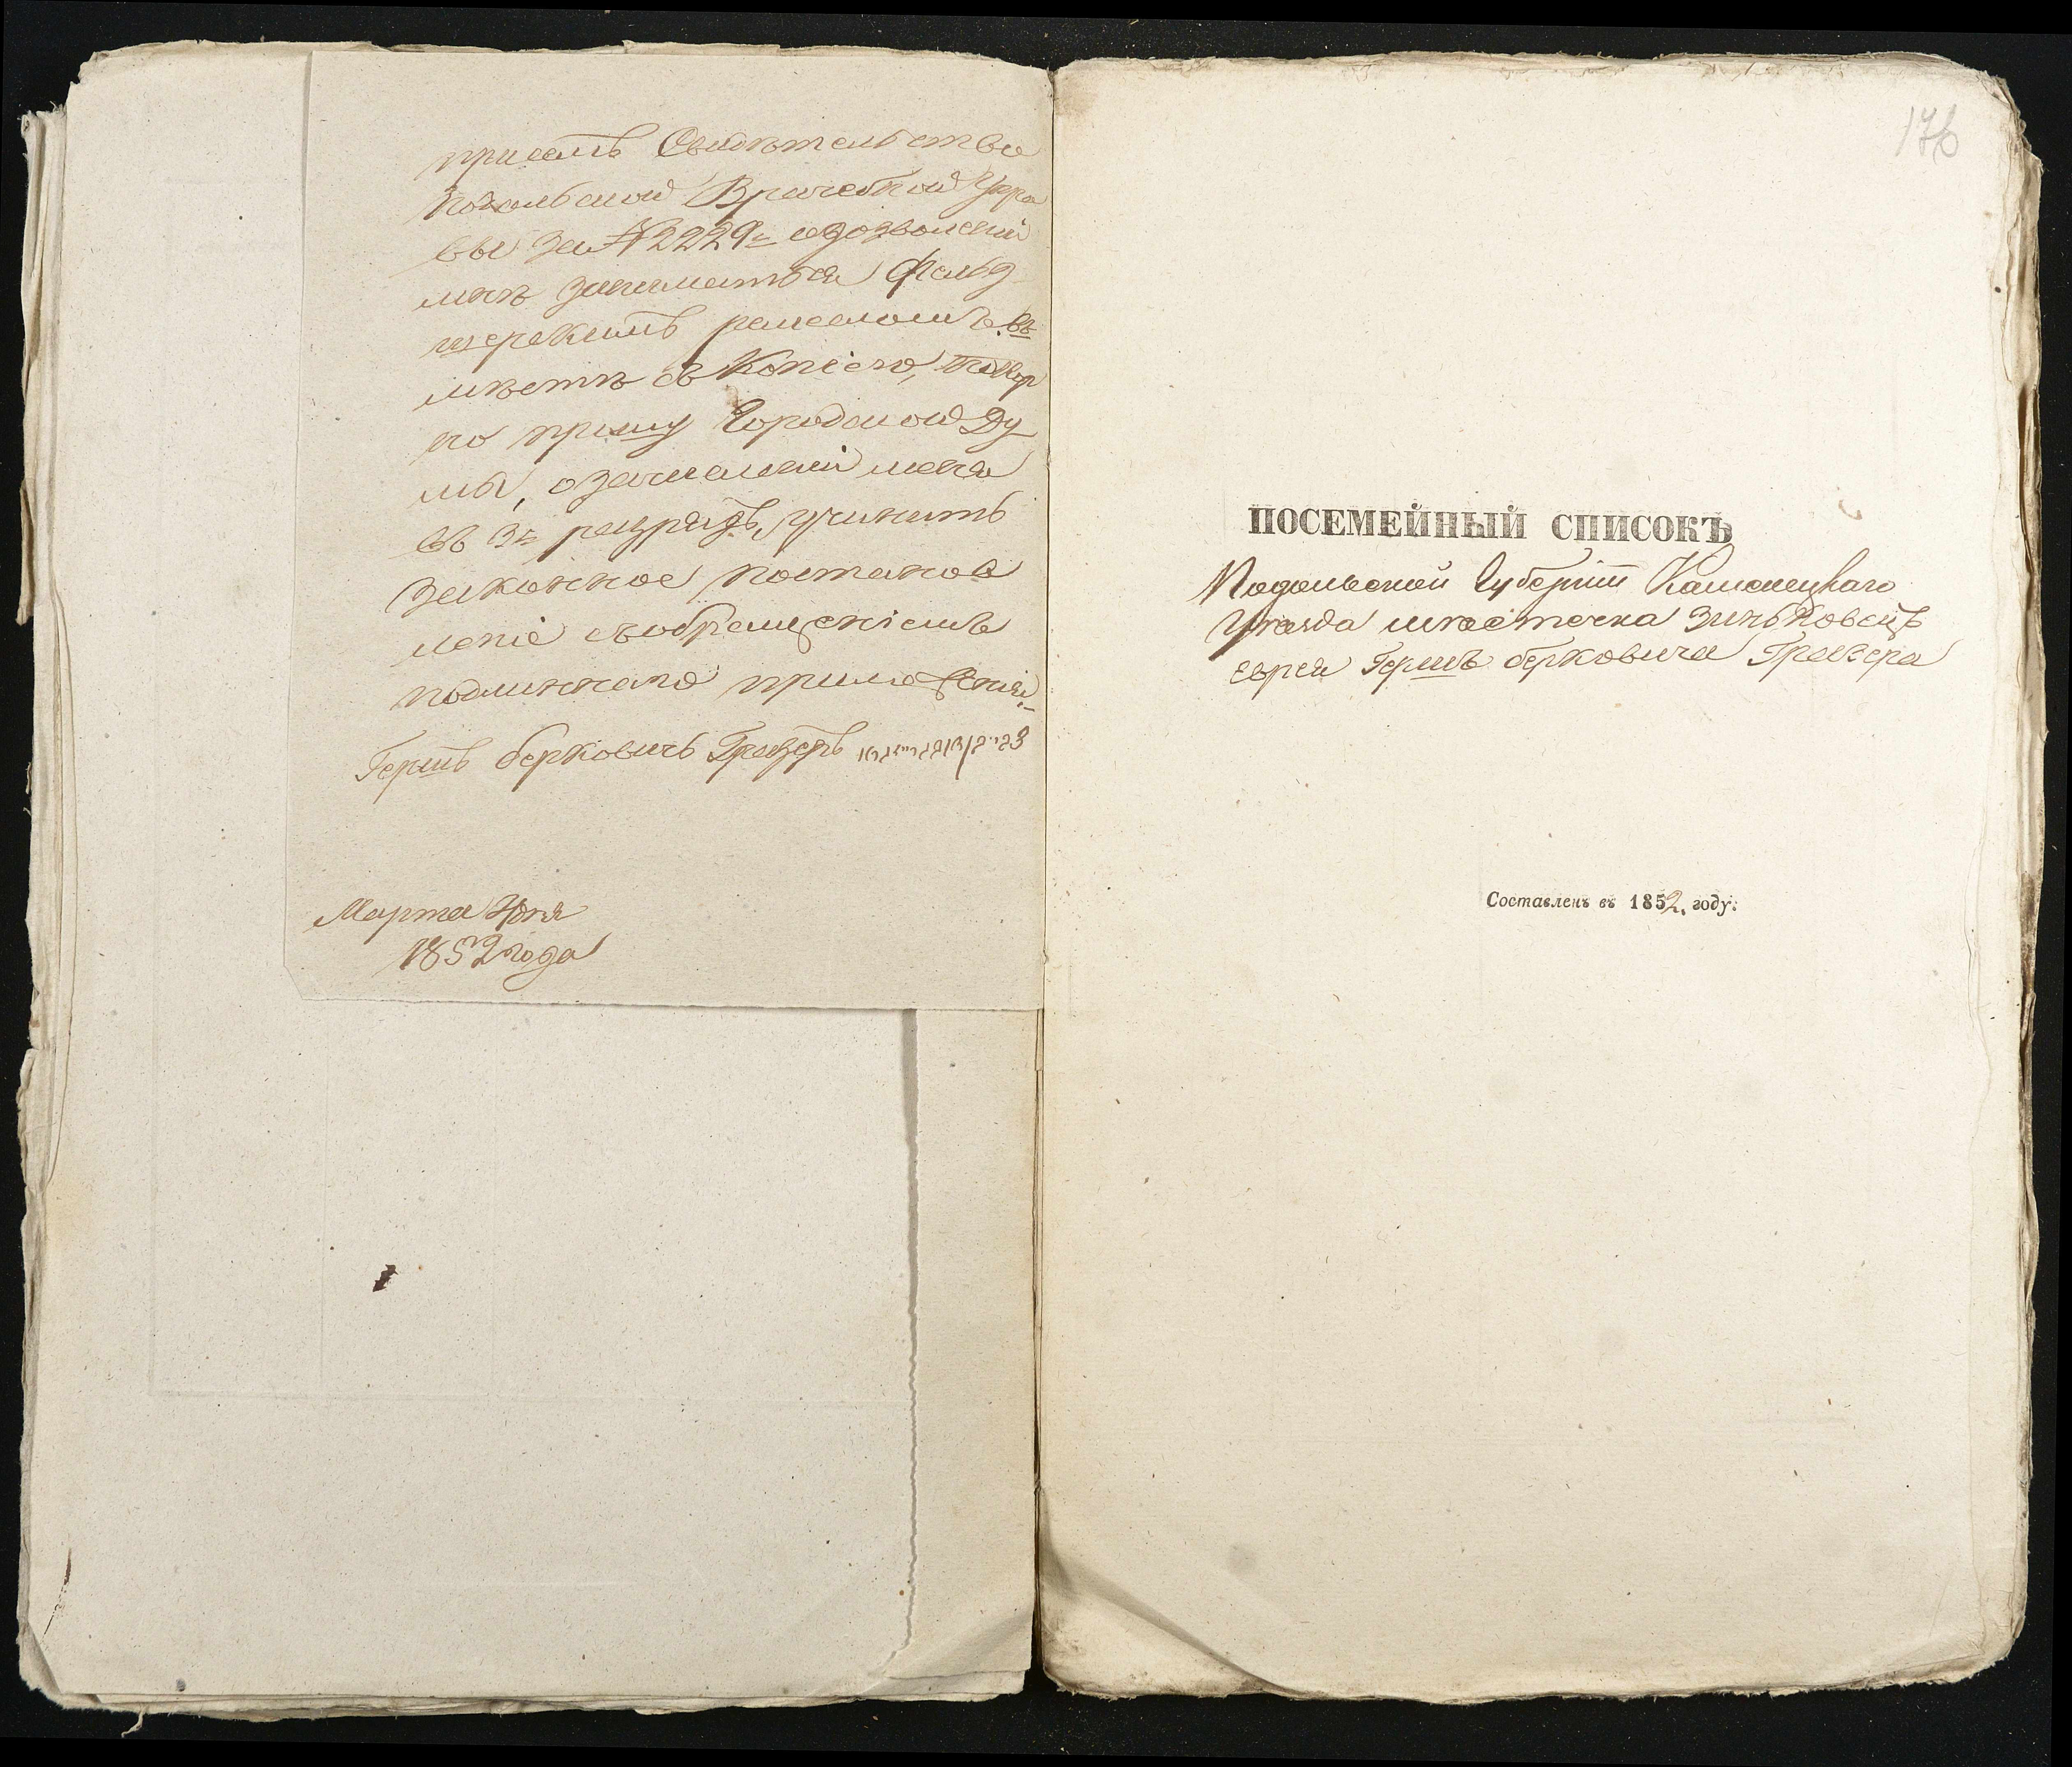 при семъ Свидѣтельство
Подольской Врачебной Упра
вы за № 2229м о дозволеніи
мнѣ заниматься фельд
шерскимъ ремесломъ въ
мѣстѣ съ копіею, покор
но прошу Городской Ду
мы, о зачисленіи меня
въ 3й разрядъ, учинить
законное постанов
леніе съ обращеніемъ
подлиннаго приложенія.
Гершъ Берковичъ Грейзеръ
Марта дня
1852 года
176
ПОСЕМЕЙНЫЙ СПИСОКЪ
Подольской Губерніи Каменецкаго
Уѣзда мѣстечка Зиньковецъ
еврея Гершъ Берковича Грейзера
Составленъ въ 1852. году.